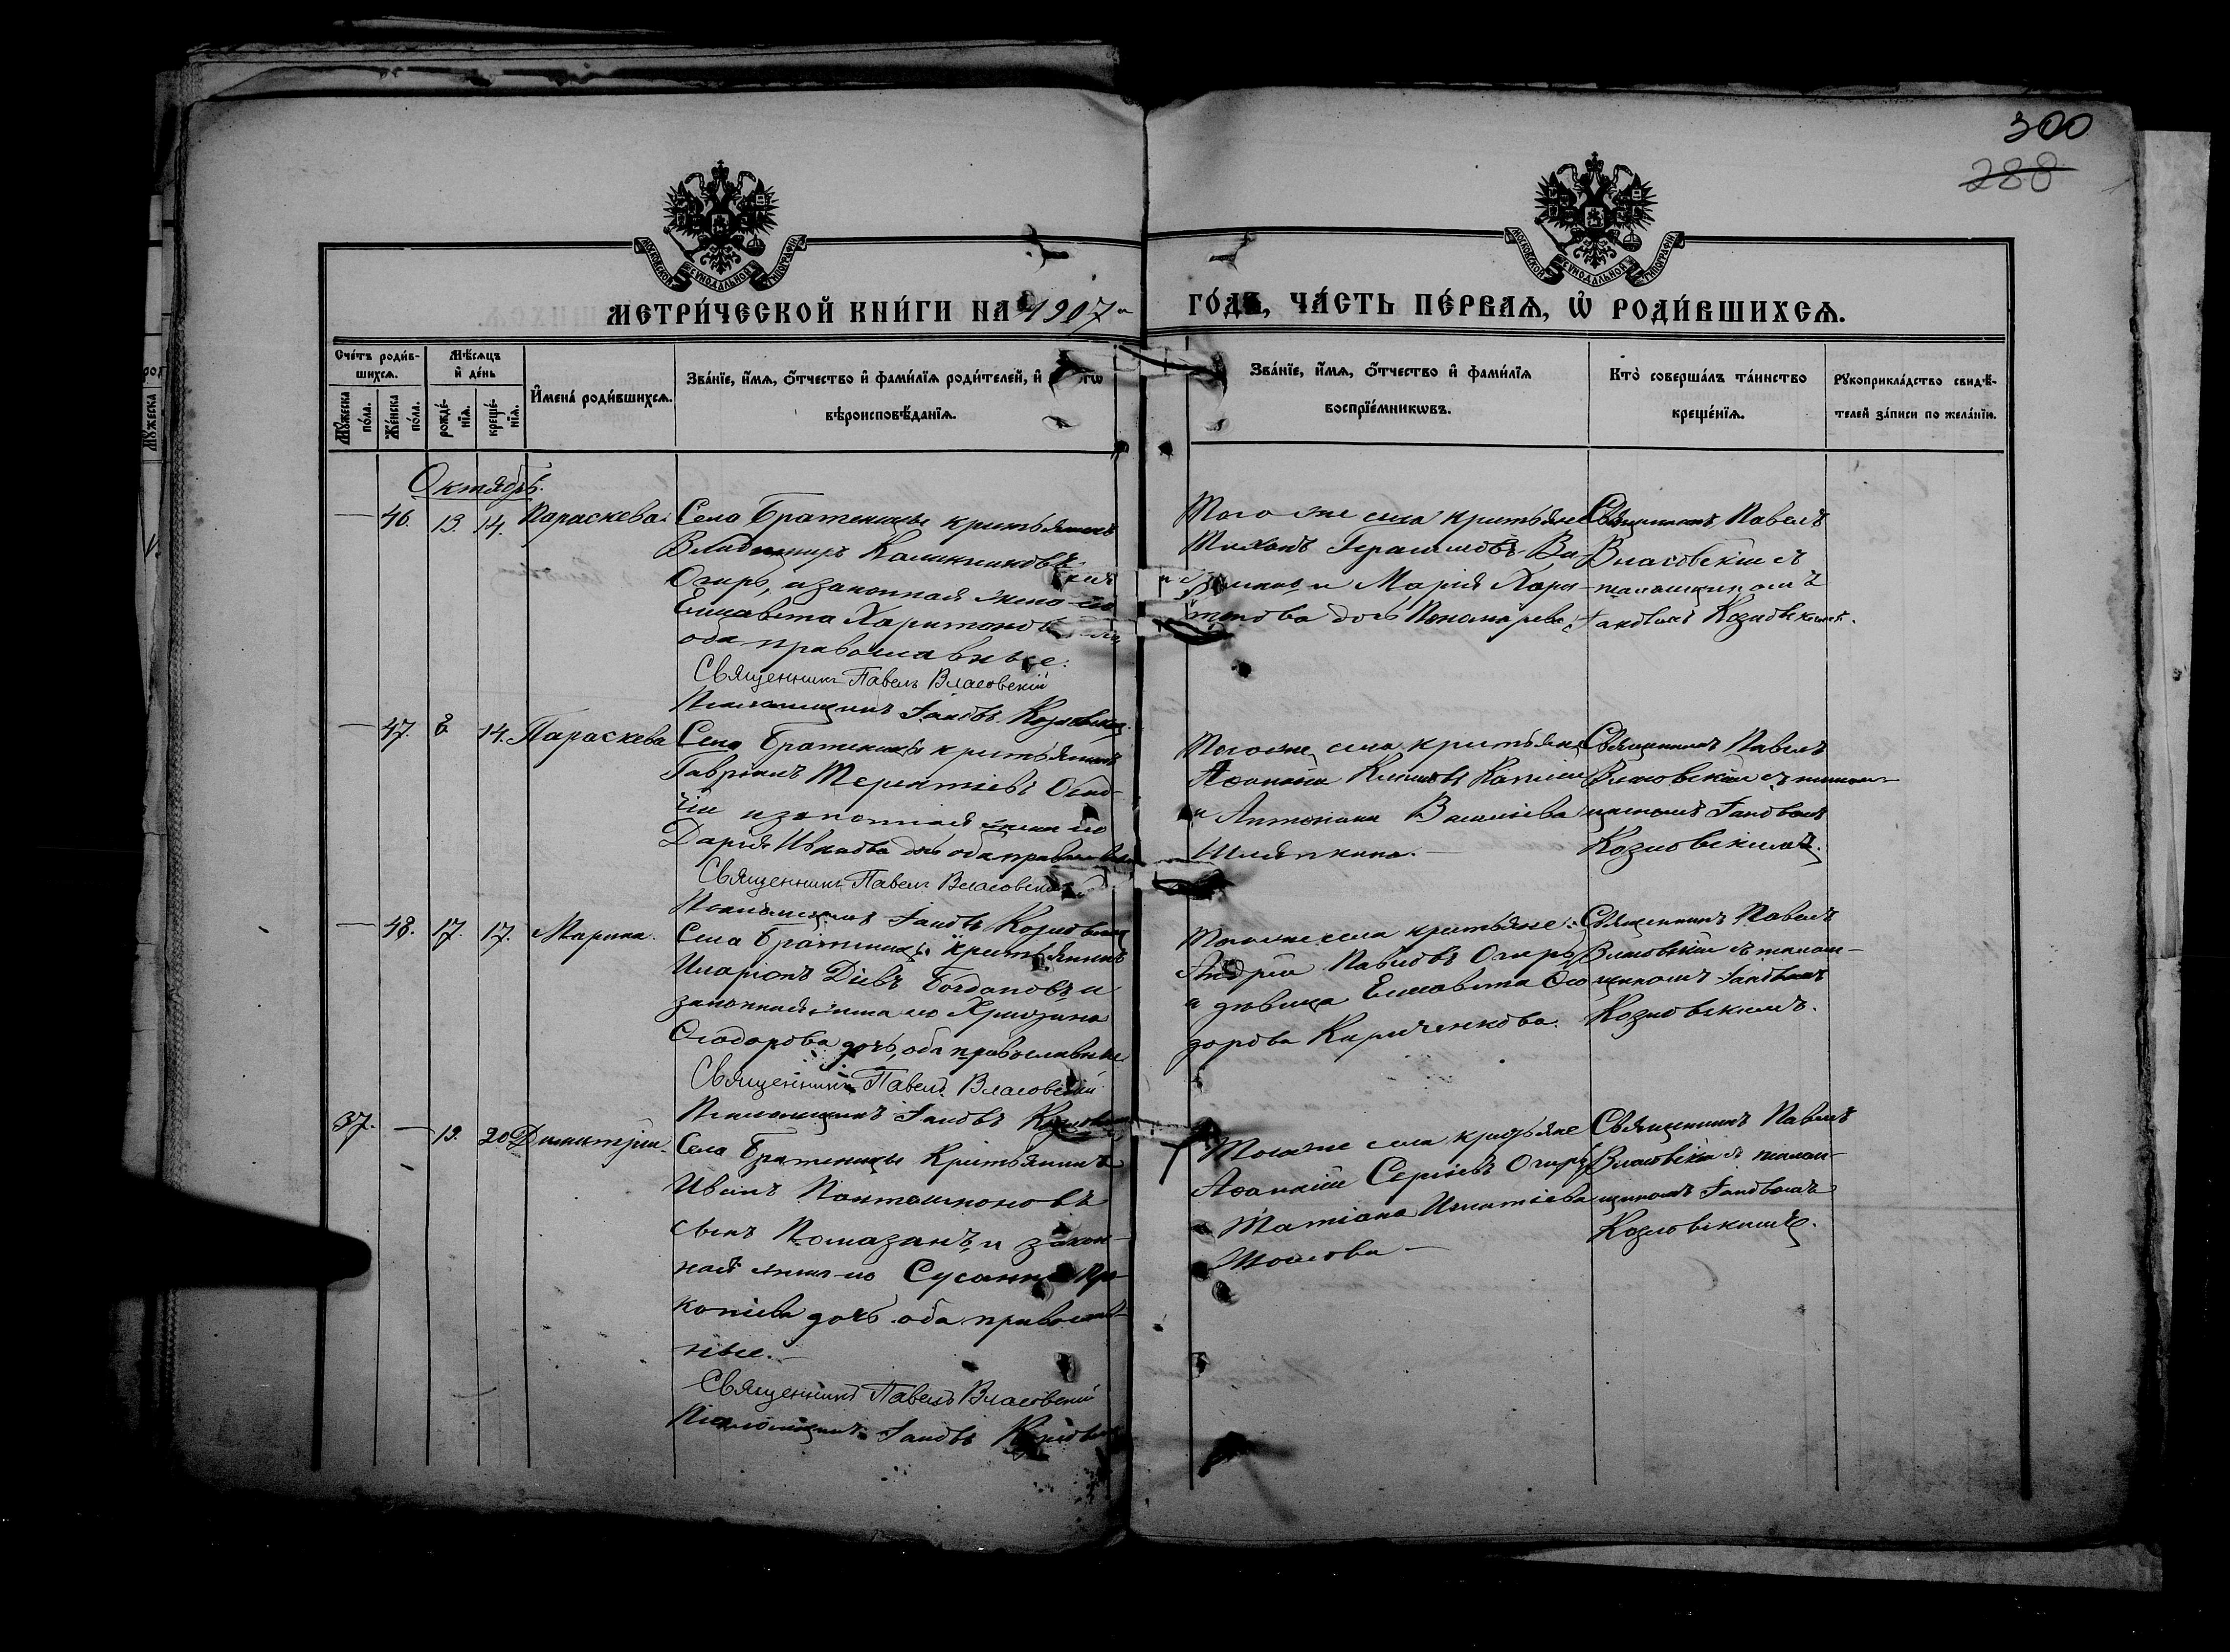 300
288
МОСКОВСКОЙ СѴНОДАЛЬНОЙ ТИПОГРАФІИ
МОСКОВСКОЙ СѴНОДАЛЬНОЙ ТИПОГРАФІИ
МЕТРИ́ЧЕСКОЙ КНИ́ГИ НА 1907й
ГО́ДЪ, ЧА́СТЬ ПЕ́РВАѦ, Ѡ҆ РОДИ́ВШИХСѦ.
Сче́тъ роди́в-
шихсѧ.
Мꙋ́жеска по́ла.
Же́нска по́ла.
Мѣ́сѧцъ
и҆ де́нь
рожде́-
нїѧ.
креще́-
нїѧ.
И҆мена̀ роди́вшихсѧ.
Зва́нїе, и҆́мѧ, ѻ҆́тчество и҆ фами́лїѧ роди́телей, и҆
вѣроисповѣ́данїѧ.
Зва́нїе, и҆́мѧ, ѻ҆́тчество и҆ фами́лїѧ
воспрїе́мникѡвъ.
Кто̀ соверша́лъ та́инство
креще́нїѧ.
Рꙋкоприкла́дство свидѣ́-
телей за́писи по жела́нїю.
Октябрь.
— 46. 13. 14. Параскева
Села Братеницы крестьянинъ
Владимиръ Калинниковъ
Огирь, и законная жена его
Елисавета Харитонова
оба православные.
Священникъ Павелъ Власовскій
Псаломщикъ Іаковъ Козловскій
Того же села крестьяне
Герасимовъ
и Марія Хари-
тонова дочь Пономарева
Священникъ Павелъ
Власовскій съ
псаломщикомъ
Іаковомъ Козловскимъ.
— 47. 8 14. Параскева
Села Братеницы крестьянинъ
Гавріилъ Терентіевъ
и законная жена его
Дарія Иванова дочь оба православные
Священникъ Павелъ Власовскій
Псаломщикъ Іаковъ Козловскій
Того же села крестьяне
Аѳанасій
и Антонина Васильева
Шляпкина. —
Священникъ Павелъ
Власовскій съ псалом-
щикомъ Іаковомъ
Козловскимъ.
— 48. 17. 17. Марина.
Села Братеницы крестьянинъ
Иларіонъ Діевъ Богдановъ и
законная жена его Христина
Ѳеодорова дочь, оба православные
Священникъ Павелъ Власовскій
Псаломщикъ Іаковъ Козловскій
Того же села крестьяне:
Андрей Павловъ Огирь
и дѣвица Елисавета Ѳео-
дорова Кириченкова.
Священникъ Павелъ
Власовскій съ псалом-
щикомъ Іаковомъ
Козловскимъ.
37. — 19. 20 Димитрій.
Села Братеницы Крестьянинъ
Иванъ Пантелимоновъ
сынъ Помазанъ, и закон-
ная жена его Сусанна Про-
копіева дочь оба православ-
ные. —
Священникъ Павелъ Власовскій
Псаломщикъ Іаковъ Козловскій
Того же села крестьяне
Аѳанасій Сергіевъ Огирь
Татіана Игнатіева
Священникъ Павелъ
Власовскій съ псалом-
щикомъ Іаковомъ
Козловскимъ.